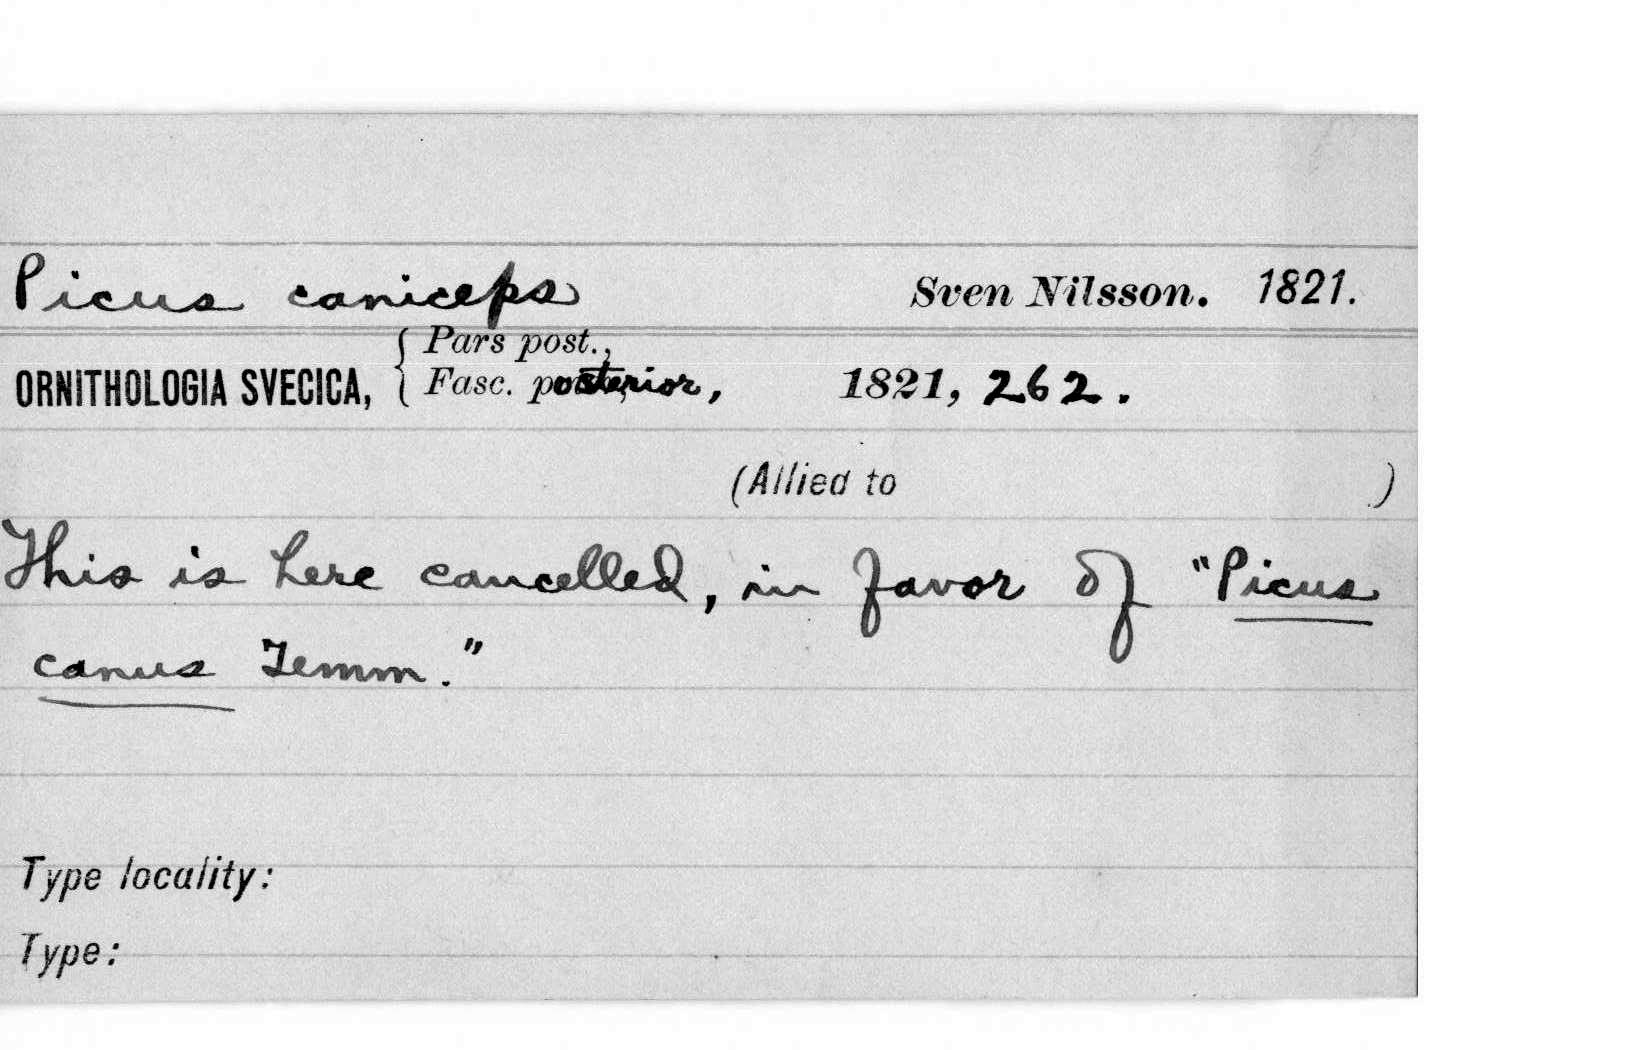 Picus caniceps Sven Nilsson. 1821.
Pars post.,
ORNITHOLOGIA SVECICA, { Fasc. posterior, 1821, 262.
(Allied to )
This is here cancelled, in favor of "Picus
canus Temm."
Type locality:
Type: